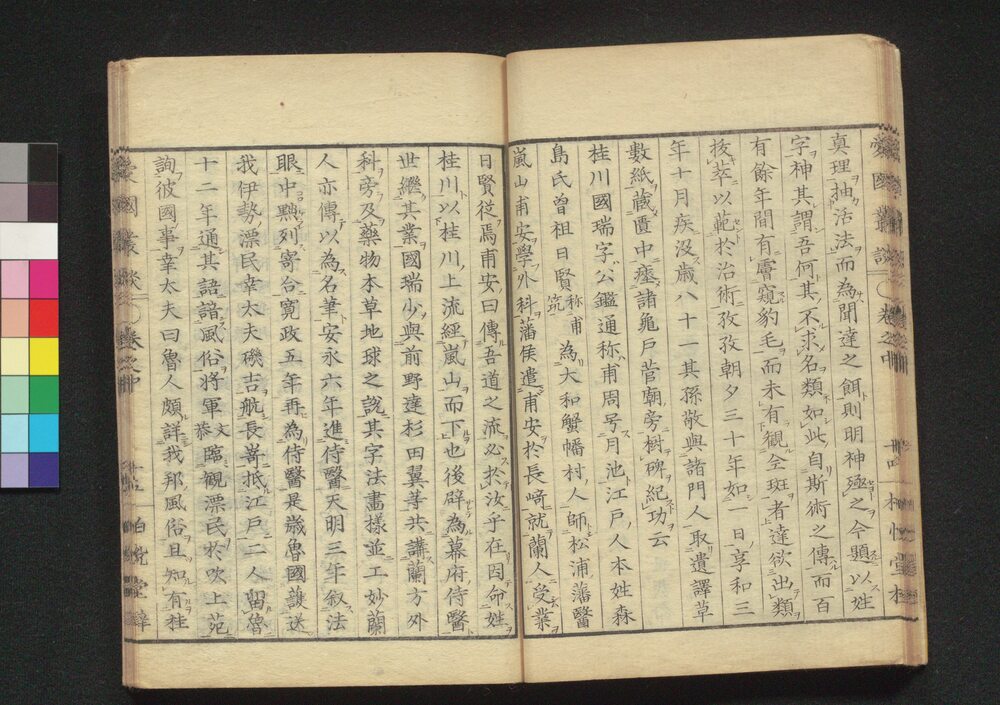 真理抽活法而為聞達之餌則明神殛之今題以姓
字神其謂吾何其不求名類如此自斯術之傳而百
有餘年間有霤窺豹毛而未有觀全斑者達欲出類
拔萃以範於治術孜孜朝夕三十年如一日享和三
年十月疾没歳八十一其孫敬與諸門人取遺譯草
數紙蔵匱中瘞諸龜戸菅廟旁樹碑紀功云
桂川國瑞字公鑑通称甫周号月池江戸人本姓森
島氏曽祖日賢称甫筑為大和蟹幡村人師松浦藩醫
嵐山甫安學外科藩侯遣甫安於長﨑就蘭人受業
日賢従焉甫安曰傳吾道之流必於汝乎在因命姓
桂川以桂川上流經嵐山而下也後辟為幕府侍醫
世繼其業國瑞少與前野達杉田翼等共講蘭方外
科旁及藥物本草地球之説其字法畫樣並工妙蘭
人亦傳以為名筆安永六年進侍醫天明三年叙法
眼中黜列寄合寛政五年再為侍醫是歳魯國護送
我伊勢漂民幸太夫磯吉航長﨑抵江戸二人留魯
十二年通其語諳風俗將軍文恭臨觀漂民於吹上苑
詢彼國事幸太夫曰魯人頗詳我邦風俗且知有桂